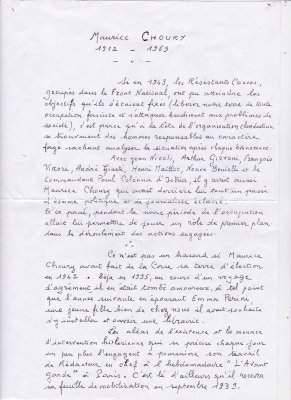 Maurice CHOURY
1912 - 1969
Si en 1943, les Résistants Corses,
groupés dans le Front National, ont pu atteindre les
objectifs qu'ils s'étaient fixés (libérer notre terre de toute
occupation fasciste et s'attaquer hardiment aux problèmes de
société), c'est parce qu'à la tête de l'organisation clandestine
se trouvaient des hommes responsables au caractère
forgé sachant analyser la situation après chaque évènement.
Avec Jean Nicoli, Arthur Giovoni, François
Vittori, André Giusti, Henri Maillot, Nonce Benielli et le
Commandant Paul Colonna d'Istria, il y avait aussi
Maurice Choury qui avait derrière lui tout un passé
d'homme politique et de journaliste éclairé.
Et ce passé, pendant la noire période de l'occupation
allait lui permettre de jouer un rôle de premier plan
dans le déroulement des actions engagées.
Ce n'est pas un hasard si Maurice
Choury avait fait de la Corse, sa terre d'élection
en 1942. Déjà en 1935, au cours d'un voyage
d'agrément il en était tombé amoureux, à tel point
que l'année suivante en épousant Emma
une jeune fille bien de chez nous il avait souhaité
s'y installer et ouvrir une librairie.
Les aléas de l'existence et la menace
d'intervention hitlérienne qui se précise chaque jour
un peu plus l'engagent à poursuivre son travail
de Rédacteur en chef à l'hebdomadaire "L'Avant
garde" à Paris. C'est là d'ailleurs qu'il recevra
sa feuille de mobilisation en septembre 1939.